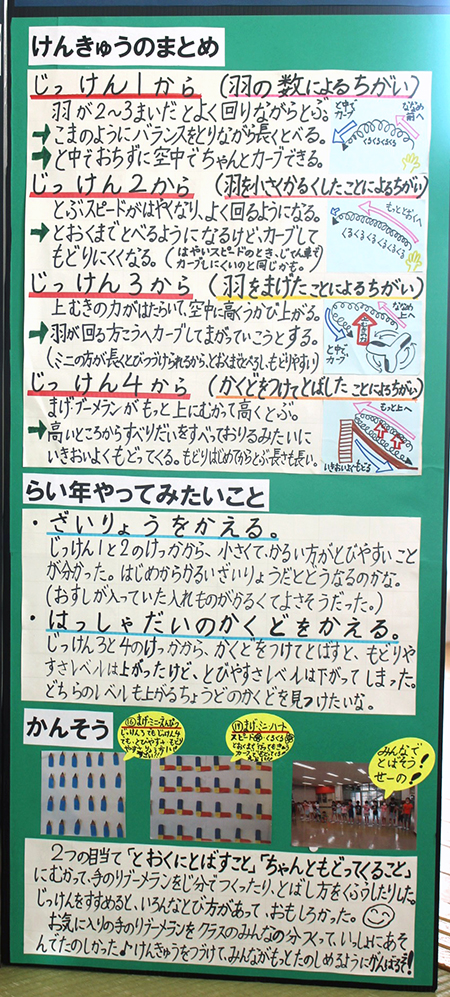 けんきゅうのまとめ
じっけん1から (羽の数によるちがい)
羽が2〜3まいだとよく回りながらとぶ。
→こまのようにバランスをとりながら長くとべる。
→と中でおちずに空中でちゃんとカーブできる。
と中で
カーブ
ななめ
前へ
くるくるくるくる
じっけん2から (羽を小さくかるくしたことによるちがい)
とぶスピードがはやくなり、よく回るようになる。
→とおくまでとべるようになるけど、カーブして
もどりにくくなる。(はやいスピードのとき、じてん車も
カーブしにくいのと同じかも。)
もっととおくへ
くるくるくるくるくる
じっけん3から (羽をまげたことによるちがい)
上むきの力がはたらいて、空中に高くうかび上がる。
→羽が回る方こうへカーブしてまがっていこうとする。
(ミニの方が長くとびつづけられるから、とおくまでとべるし、もどりやすい)
ななめ
上へ
と中で
カーブ
じっけん4から (かくどをつけてとばしたことによるちがい)
まげブーメランがもっと上にむかって高くとぶ。
→高いところからすべりだいをすべっておりるみたいに
いきおいよくもどってくる。もどりはじめてからとぶ長さも長い。
もっと上へ
いきおいよくもどる
らい年やってみたいこと
・ざいりょうをかえる。
じっけん1と2のけっかから、小さくて、かるい方がとびやすいこと
が分かった。はじめからかるいざいりょうだとどうなるのかな。
(おすしが入っていた入れものがかるくてよさそうだった。)
・はっしゃだいのかくどをかえる。
じっけん3と4のけっかから、かくどをつけてとばすと、もどりや
すさレベルは上がったけど、とびやすさレベルは下がってしまった。
どちらのレベルも上がるちょうどのかくどを見つけたいな。
かんそう
⑯まげ・ミニ・えんぴつ
じっけん3でもじっけん4
でも、とびやすさ・もどり
⑰まげ・ミニ・ハート
スピード
くるくる
みんなで
とばそう!
せーの!
2つの目当て「とおくにとばすこと」「ちゃんともどってくること」
にむかって、手のりブーメランをじ分でつくったり、とばし方をくふうしたりした。
じっけんをすすめると、いろんなとび方があって、おもしろかった。
お気に入りの手のりブーメランをクラスのみんなの分つくって、いっしょにあそ
んでたのしかった♪けんきゅうをつづけて、みんながもっとたのしめるようにがんばるぞ!